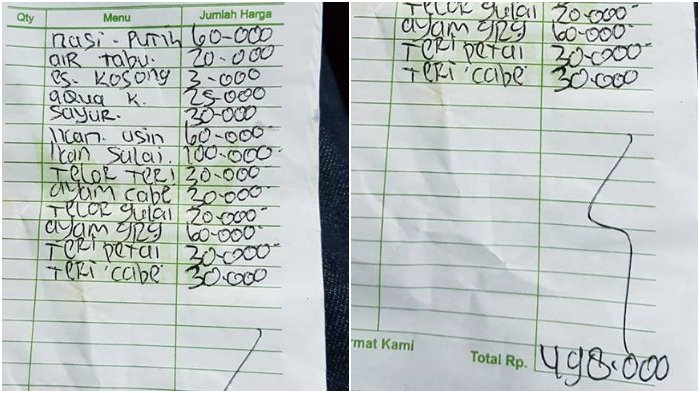 Qty Menu Jumlah Harga
nasi. Putih 60.000
air tabu. 20.000
es. kosong 3.000
aqua k. 25.000
Sayur. 30.000
Ikan. usin 60.000
Ikan Sulai. 100.000
Telor Teri 30.000
ayam cabe 30.000
Telor gulai 20.000
ayam grg 60.000
Teri petai 30.000
Teri cabe 30.000
Telor gulai 20.000
ayam grg 60.000
Teri petai 30.000
Teri cabe 30.000
rmat Kami
Total Rp. 498.000